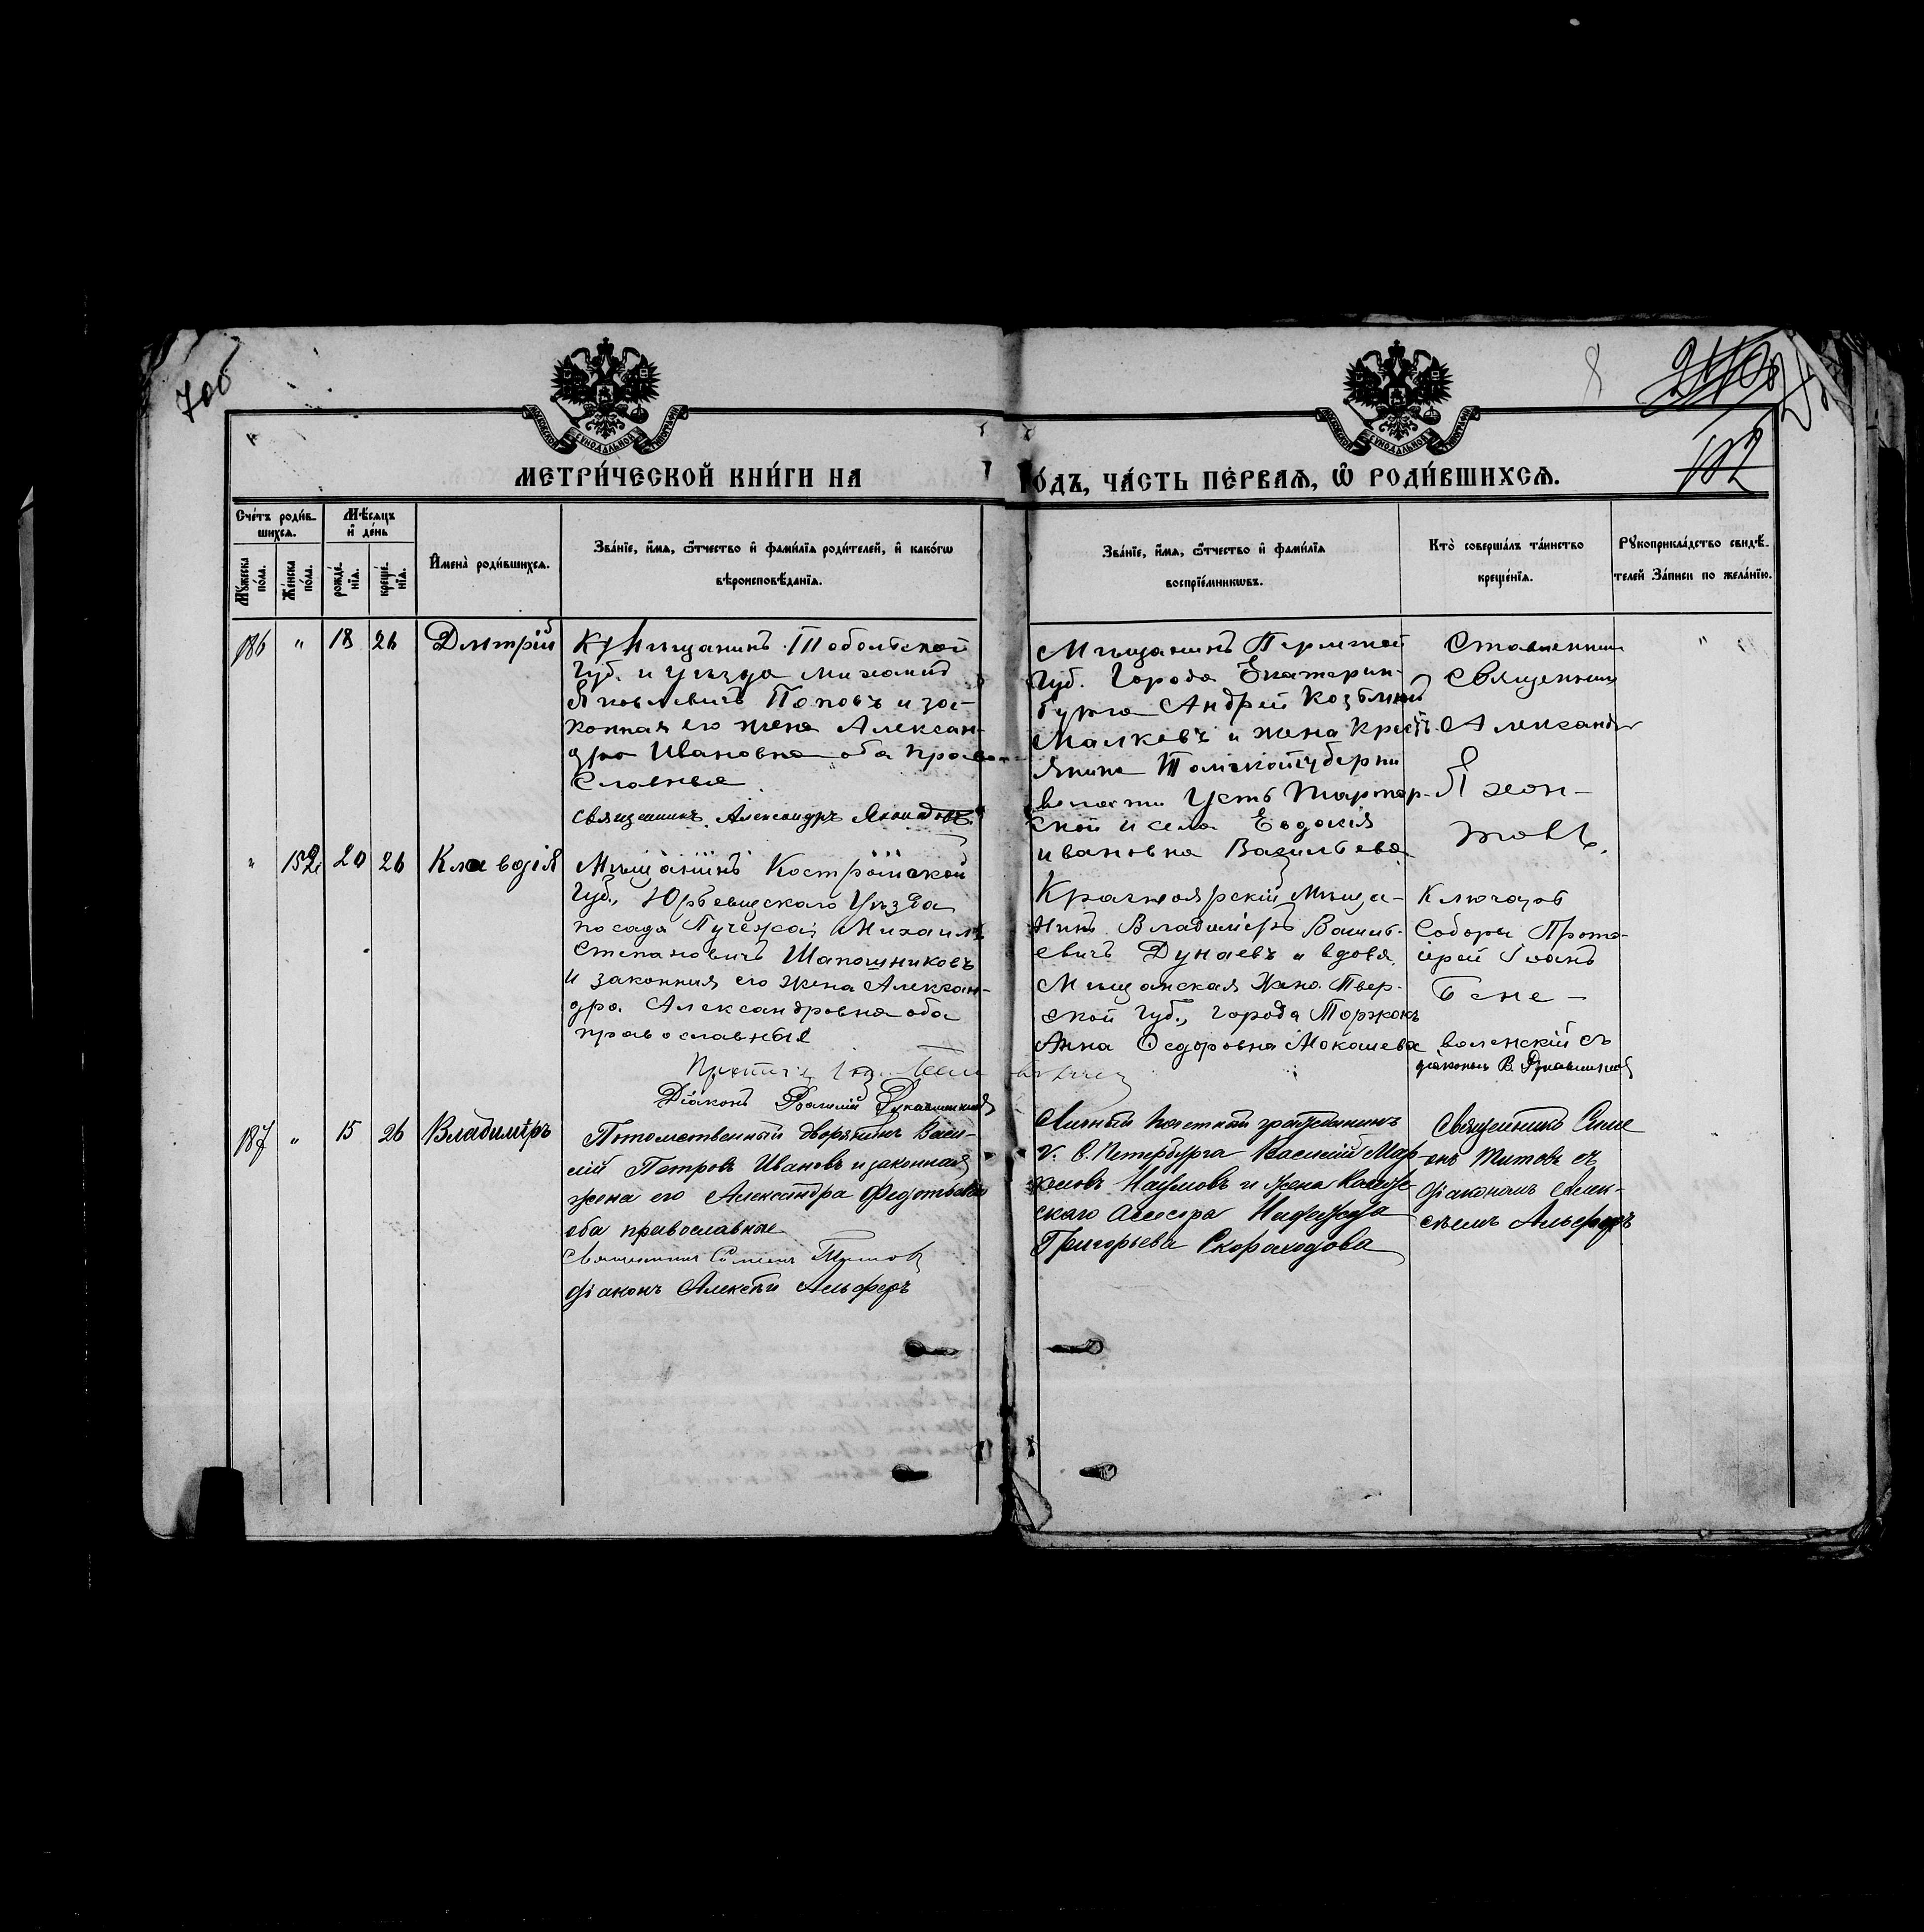 МЕТРИ́ЧЕСКОЙ КНИ́ГИ НА
ГО́ДЪ, ЧА́СТЬ ПЕ́РВАѦ, Ѡ҆ РОДИ́ВШИХСѦ.
Сче́тъ роди́в-
шихсѧ.
Мѣ́сѧцъ
и҆ де́нь
Мꙋ́жеска
по́ла.
Же́нска
по́ла.
рожде́-
нїѧ.
креще́-
нїѧ.
И҆мена̀ роди́вшихсѧ.
Зва́нїе, и҆́мѧ, ѻ҆́тчество и҆ фами́лїѧ роди́телей, и҆ како́гѡ
вѣроисповѣ́данїѧ.
Зва́нїе, и҆́мѧ, ѻ҆́тчество и҆ фами́лїѧ
воспрїе́мникѡвъ.
Кто̀ соверша́лъ та́инство
креще́нїѧ.
Рꙋкоприкла́дство свидѣ́-
телей За́писи по жела́нїю.
186 " 18 26 Дмтрій
Мѣщанинъ Тобольской
Губ. и уѣзда Михаилъ
Яковлевичъ Поповъ и за-
конная его жена Алексан-
дра Ивановна оба право-
славные
Священникъ Александръ
Мѣщанинъ Пермской
Губ. Города Екатерин-
бурга Андрей
Малковъ и жена Крестъ-
янина Томской губерни
волости Усть Тартар-
ской и села Евдокія
ивановна Васильева
Священник
Александр
"
" 152 20 26 Клавдія
Мѣщанинъ Костромской
Губ., Юрьевецкаго Уѣзда
посада Пучежа, Михаилъ
Степановичъ Шапошниковъ
и законная его жена Алексан-
дра Александровна оба
православные
Діаконъ Василій
Красноярскій Мѣща-
нинъ Владиміръ Василь-
евичъ Дунаевъ и вдова
Мѣщанская Жена Твер-
ской Губ., города Торжокъ
Анна Федоровна Мокашева
Ключарь
Собора Прото-
іерей Іоаннъ
Бене-
воленскій съ
діакономъ В.
187 " 15 26 Владиміръ
Потомственный дворянинъ Васи-
лій Петровъ Ивановъ и законная
жена его Александра Федотьева
оба православные
Священникъ Симеонъ Титовъ
діаконъ Алексѣй Альферъ
Личный почетный гражданинъ
г. С. Петербурга Василій Мар-
ковъ Наумовъ и жена Коллеж-
скаго асесора Надежда
Григорьева Скороходова
Священникъ Симе-
онъ Титовъ съ
діакономъ Алек-
сѣемъ Альферъ